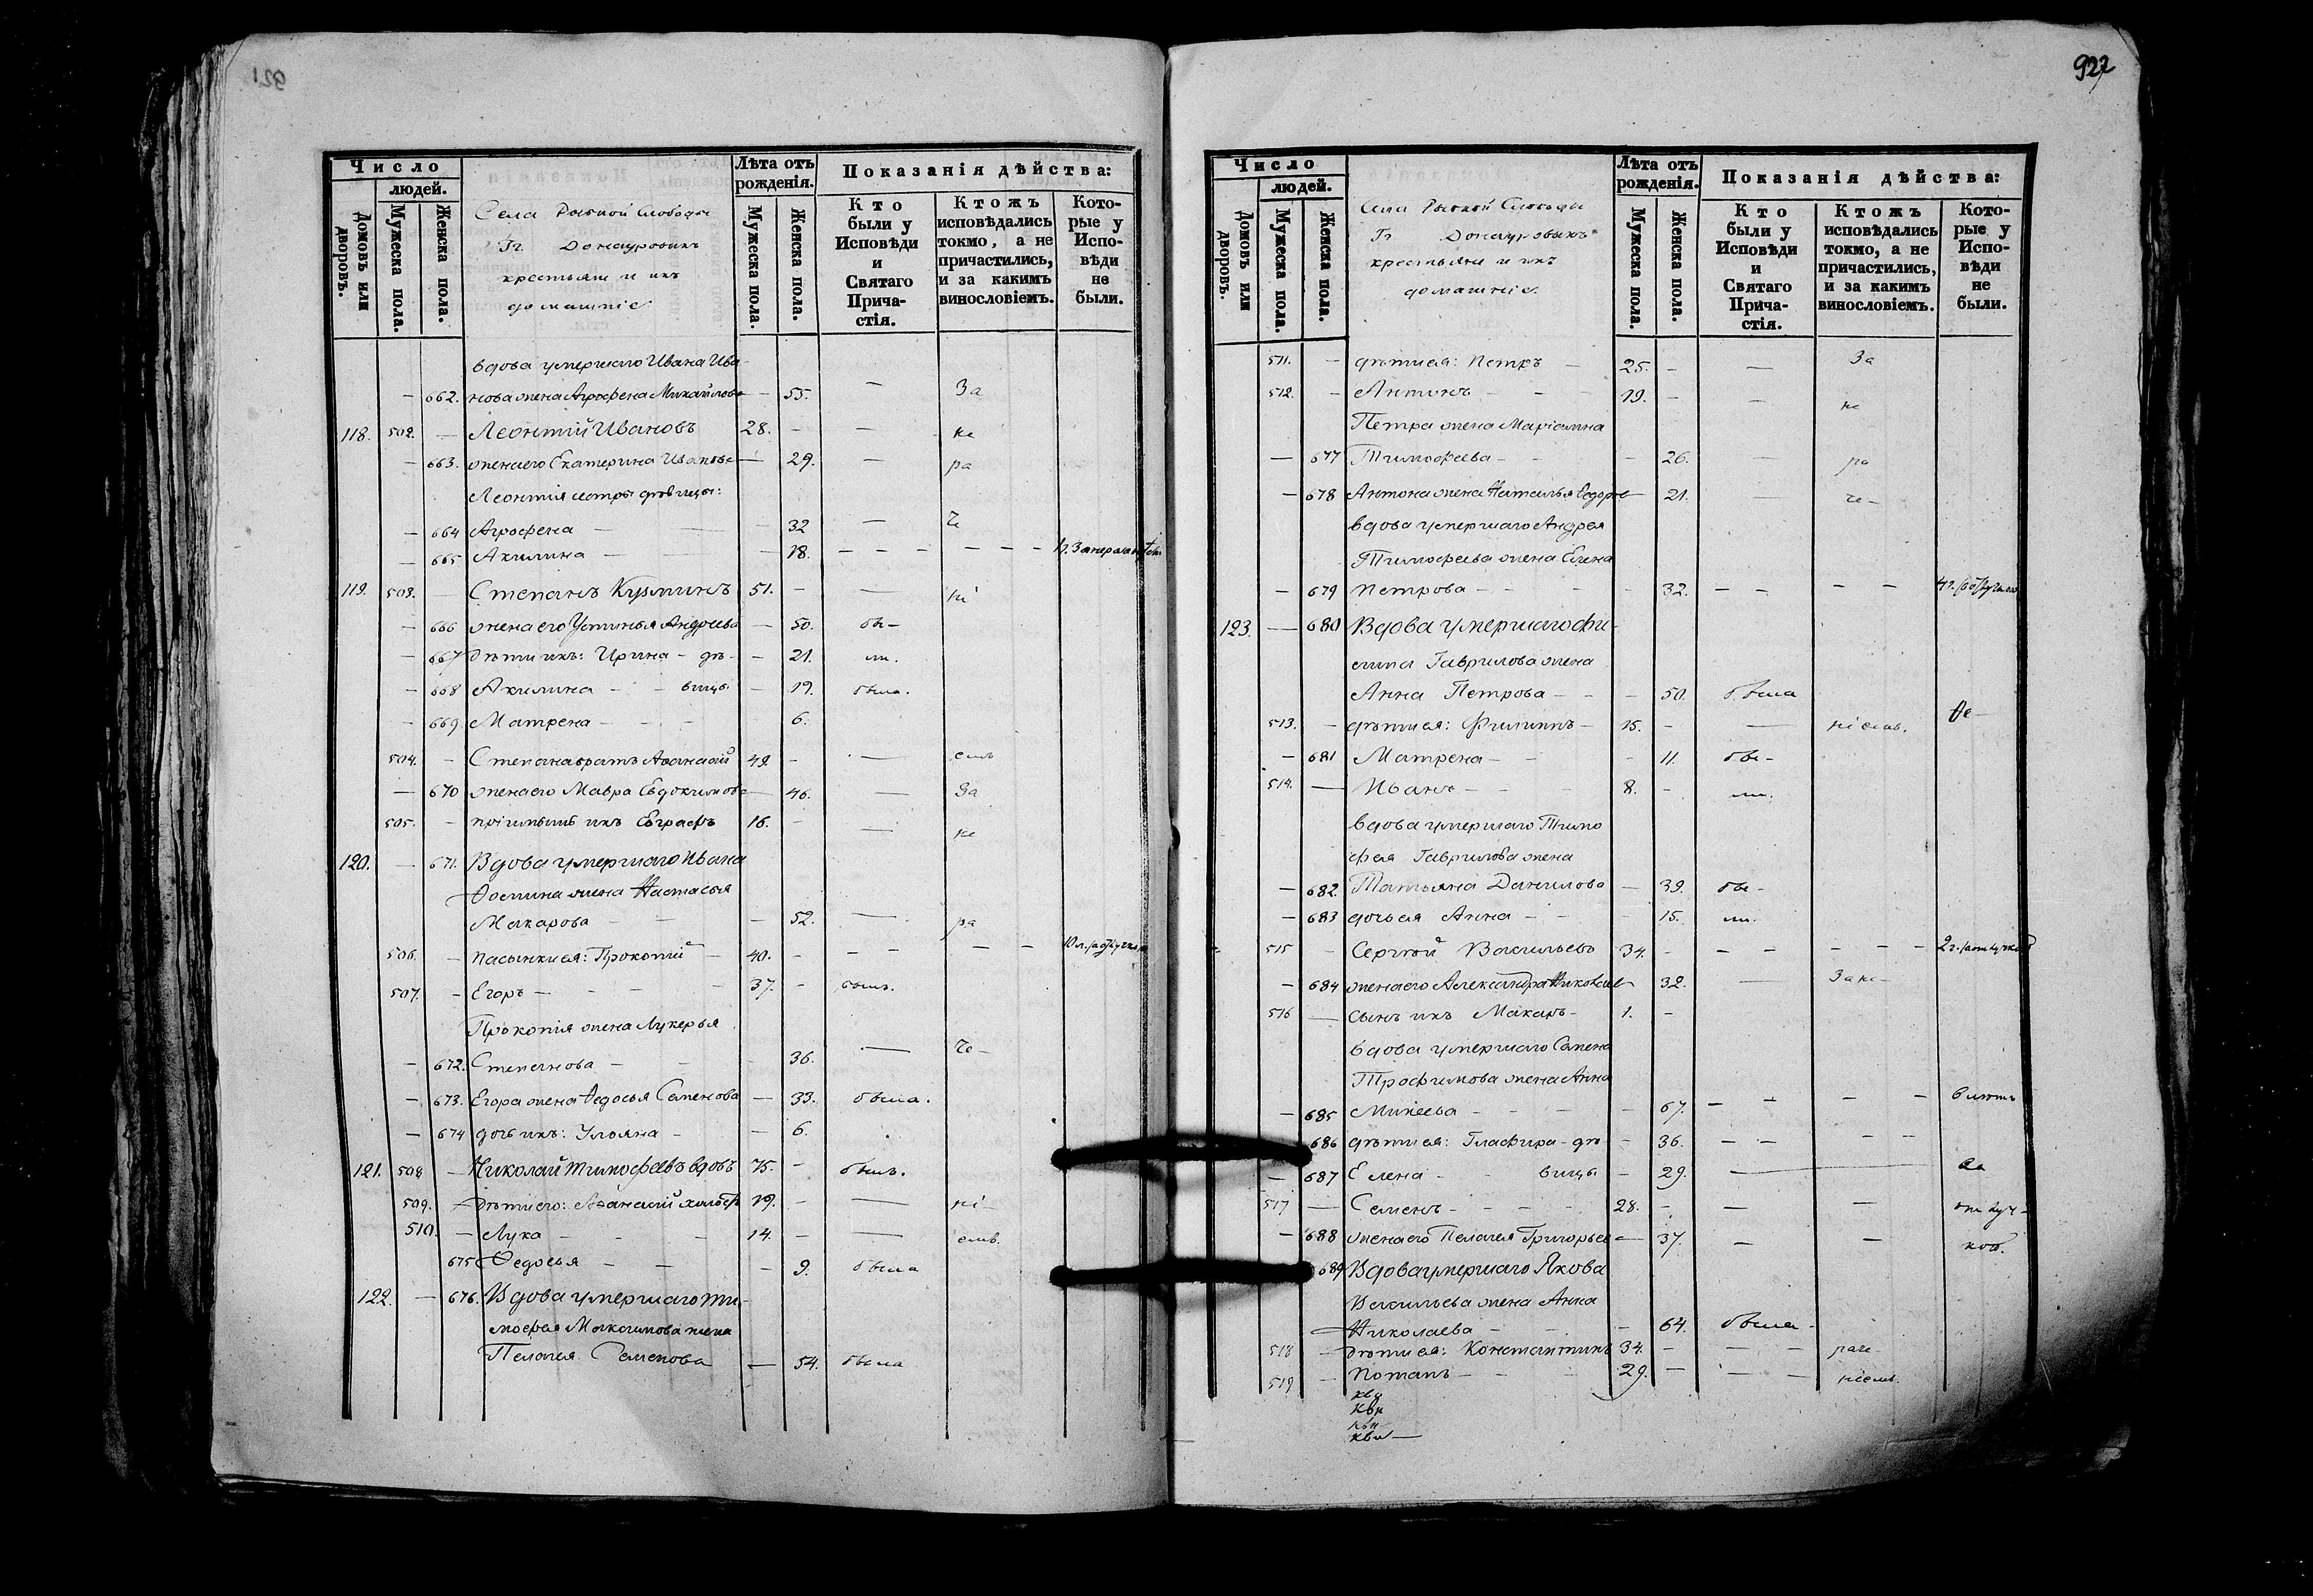 927
Число
людей.
Домовъ или дворовъ.
Мужеска пола.
Женска пола.
Села Рыбной Слободы
Гг. Донауровыхъ
крестьяне и ихъ
домашніе
Лѣта отъ рожденія.
Мужеска пола.
Женска пола.
Показанія дѣйства:
Кто были у Исповѣди и Святаго Прича-стія.
Ктожъ исповѣдались токмо, а не причастились, и за какимъ винословіемъ.
Кото-рые у Испо-вѣди не были.
вдова умершаго Ивана Ива-
— 662. нова жена Агрофена Михайлова — 55. — За
118. 502. — Леонтій Ивановъ 28. - — не
— 663. жена его Екатерина Иванова — 29. — ра
Леонтія сестры дѣвицы:
— 664 Агрофена — — 32 — че
— 665 Акилина — — 18.
119. 503. — Степанъ Кузминъ 51. - — ні
— 666 жена его Устинья Андреева — 50. бы-
— 667 дѣти ихъ: Ирина - дѣ- — 21. ли.
— 668 Акилина - - вицы — 19. была.
— 669 Матрена - - 6.
504. — Степана братъ Аѳанасій 49. - — емъ
— 670 жена его Мавра Евдокимова — 46. — За
505. — пріимышъ ихъ Евграфъ 16. - — не
120. — 671. Вдова умершаго Ивана
жена Настасья
Макарова — — 52. — ра
506. — пасынки ея: Прокопій — 40. - — —
507. — Егоръ — 37. - былъ.
Прокопія жена Лукерья
— 672. Степанова — 36. — че-
— 673. Егора жена Ѳедосья Семенова — 33. была.
— 674 дочь ихъ: Ульяна — 6.
121. 508 — Николай Тимофеевъ вдовъ 75. - былъ.
509. — дѣти его: Аѳанасій холостъ 19. - — ні-
510. — Лука — 14. - — емъ.
675 Ѳедосья — — 9. была
122. — 676. Вдова умершаго Ти-
мофея Максимова жена
Пелагея Семенова — 54. была
Число
людей.
Домовъ или дворовъ.
Мужеска пола.
Женска пола.
Села Рыбной Слободы
Гг Донауровыхъ
крестьяне и ихъ
домашніе.
Лѣта отъ рожденія.
Мужеска пола.
Женска пола.
Показанія дѣйства:
Кто были у Исповѣди и Святаго Прича-стія.
Ктожъ исповѣдались токмо, а не причастились, и за какимъ винословіемъ.
Кото-рые у Испо-вѣди не были.
511. — дѣти ея: Петръ — 25. - — За
512. — Антонъ — 19. - — не
Петра жена Маріамна
— 677 Тимофеева - — 26. — ра
— 678 Антона жена Наталья Егорова — 21. — че-
вдова умершаго Андрея
Тимофеева жена Елена
— 679 Петрова - - — 32. — —
123. — 680 Вдова умершаго Фи-
липа Гаврилова жена
Анна Петрова - — 50. была
513. — дѣти ея: Филиппъ - 15. - — ніемъ.
— 681 Матрена - — 11. бы-
514. — Иванъ — 8. - ли.
вдова умершаго Тимо
фея Гаврилова жена
— 682. Татьяна Данилова — 39. бы-
— 683 дочь ея Анна - — 15. ли.
515 — Сергѣй Васильевъ 34. - — —
— 684 жена его Александра Николаев — 32. — За не-
516 — сынъ ихъ Макаръ - 1. -
вдова умершаго Семена
Трофимова жена Анна
— 685 Минеева - — 67. — — 6 лѣтъ
686 дѣти ея: Глафира - дѣ — 36. — —
— 687 Елена - вицы — 29. — за
517 — Семенъ - 28. - — — отлуч-
— 688 жена его Пелагея Григорьева — 37. — — кою.
689 Вдова умершаго Якова
Васильева жена Анна
Николаева — — 64. была-
518 — дѣти ея: Константинъ 34. - — раче-
519 — Потапъ - 29. — — ніемъ.